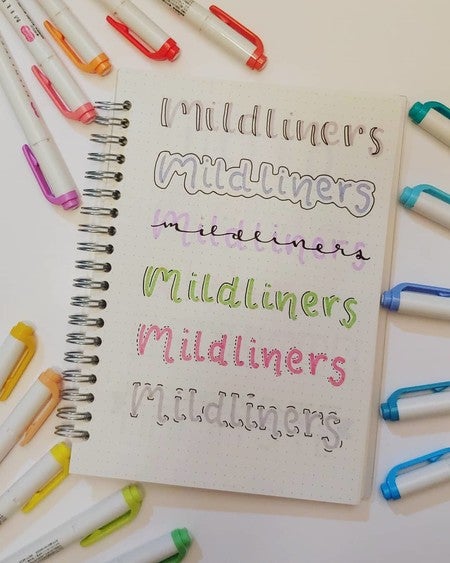 Mildliners
Mildliners
mildliners
Mildliners
Mildliners
Mildliners